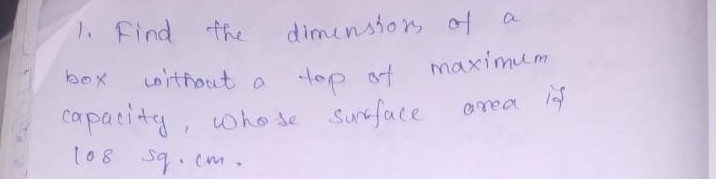 1. Find the dimensions of a
box without a top of maximum
capacity, whose surface area is
108 sq. cm.